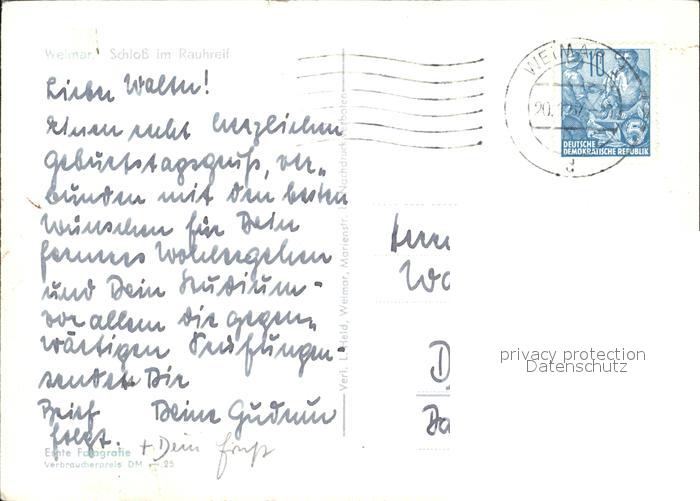 Weimar. Schloß im Rauhreif
Lieber Walter!
Einen recht herzlichen
Geburtstagsgruß, ver-
bunden mit den besten
Wünschen für Dein
ferneres Wohlergehen
und Dein Studium -
vor allem die gegen-
wärtigen Prüfungen -
sendet Dir
Brief Deine Gudrun
folgt.
+ Dein
Echte Fotografie
Verbraucherpreis DM -.25
Verl. L. Held, Weimar, Marienstr. Nachdruck verboten
WEIMAR
10
5
DEUTSCHE
DEMOKRATISCHE REPUBLIK
d
Herrn
privacy protection
Datenschutz